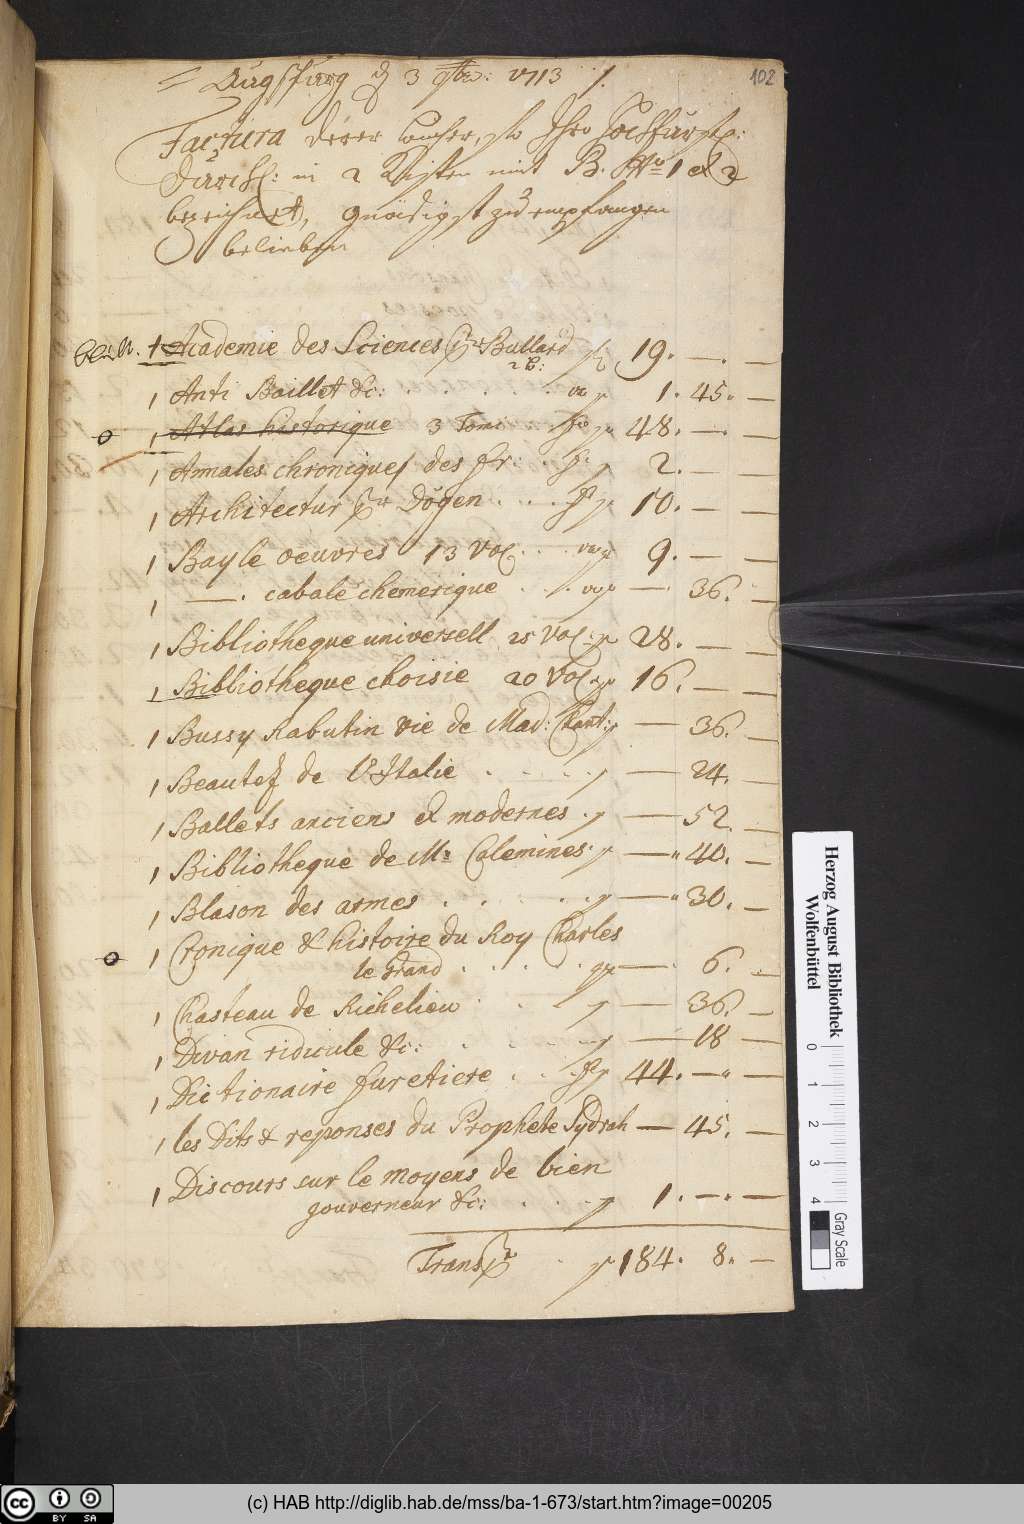 102
Augspurg d 3 9br: 1713
Factura derer Bücher, so Ihro Hochfürstl:
Durchl: in 2 Kisten mit B. No 1 & 2
bezeichnet, gnädigst zu empfangen
belieben
1 Academie des Sciences Ballard 19. — . —
2 B:
1 Anti Baillet &c: 1. 45. —
1 Atlas historique 3 Tomi 48. — . —
1 Annales chroniques des fr: 2. — —
1 Architectur Dögen 10. — —
1 Bayle oeuvres 13 Vol. 9. — —
1 — . cabale chemerique — 36. —
1 Bibliotheque universell 25 Vol. 28. — —
1 Bibliotheque choisie 20 Vol. 16. — —
1 Bussy Rabutin vie de Mad: Chant: — 36. —
1 Beautez de l'Italie — 24. —
1 Ballets anciens & modernes — 52. —
1 Bibliotheque de Mr Calemines. — 40. —
1 Blason des armes — 30. —
1 Cronique & histoire du Roy Charles
le Grand — 6. —
1 Chasteau de Richelieu — 36. —
1 Divan ridicule &c: — 18 —
1 Dictionaire furetiere 44. — —
1 les Dits & reponses du Prophete Sydrah — 45. —
1 Discours sur le moyens de bien
gouverneur &c: 1. — . —
Transp 184. 8. —
Herzog August Bibliothek
Wolfenbüttel
0 1 2 3 4
Gray Scale
BY SA
(c) HAB http://diglib.hab.de/mss/ba-1-673/start.htm?image=00205